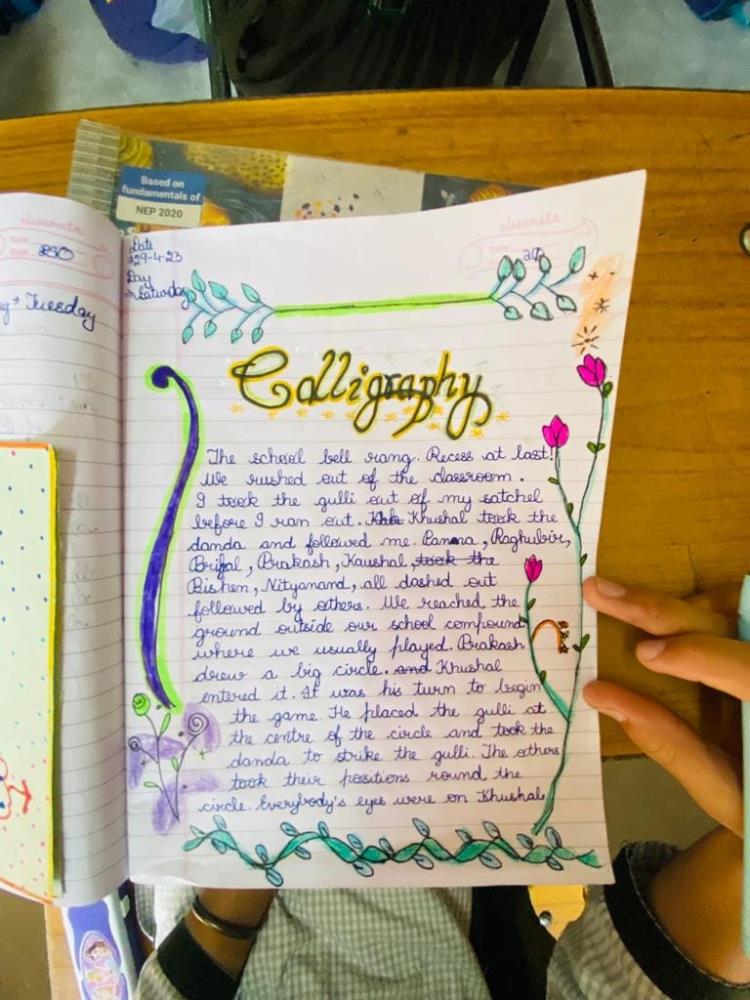 Based on
fundamentals of
NEP 2020
classmate
classmate
Date
Page
Date
→29-4-23
Day
→Saturday
→ Tuesday
Calligraphy
The school bell rang. Recess at last!
We rushed out of the classroom.
I took the gulli out of my satchel
before I ran out. Khushal took the
danda and followed me. Panna, Raghubir,
Brijpal, Prakash, Kaushal, took the
Bishen, Nityanand, all dashed out
followed by others. We reached the
ground outside our school compound
where we usually played. Prakash
drew a big circle. and Khushal
entered it. It was his turn to begin
the game. He placed the gulli at
the centre of the circle and took the
danda to strike the gulli. The others
took their positions round the
circle. Everybody's eyes were on Khushal